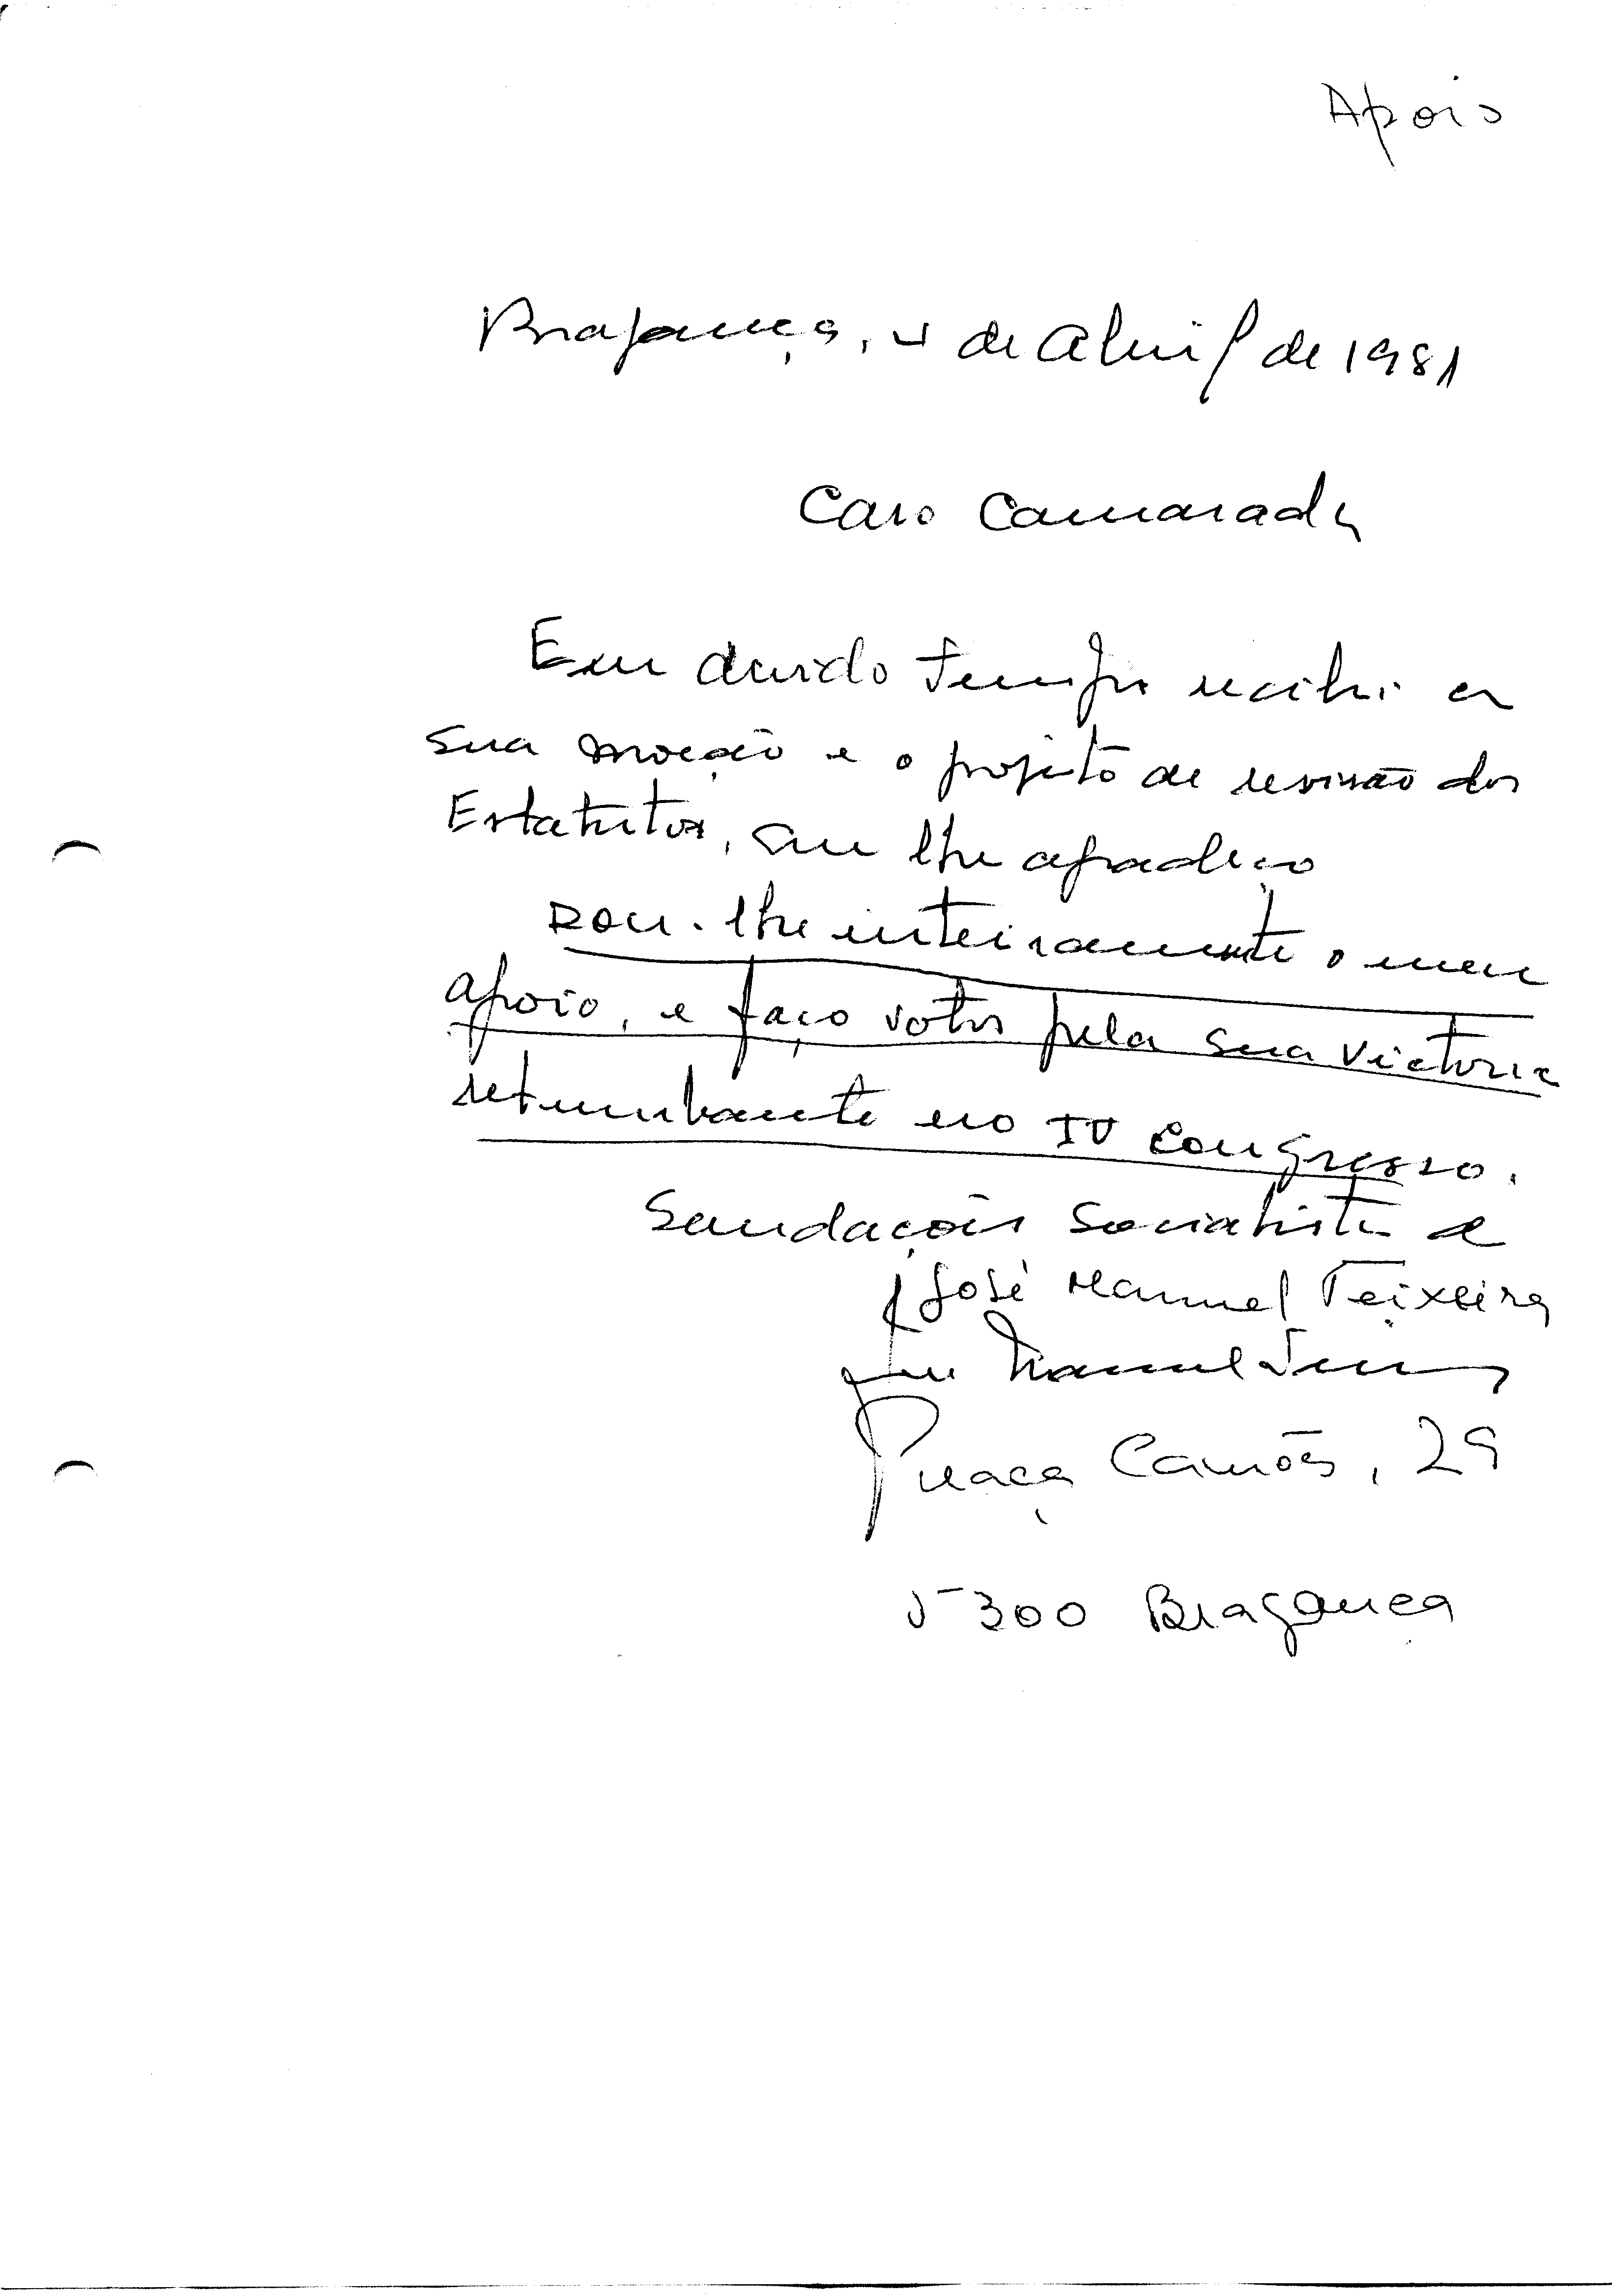 Apoio
Bragança, 4 de Abril de 1981
Caro Camarada
Em devido tempo recebi a
sua moção e o projecto de revisão dos
Estatutos, que lhe agradeço
Dou-lhe inteiramente o meu
apoio, e faço votos pela sua victoria
retumbante no IV Congresso.
Saudações Socialistas de
José Manuel Teixeira
José Manuel
Praça Camões, 29
5300 Bragança